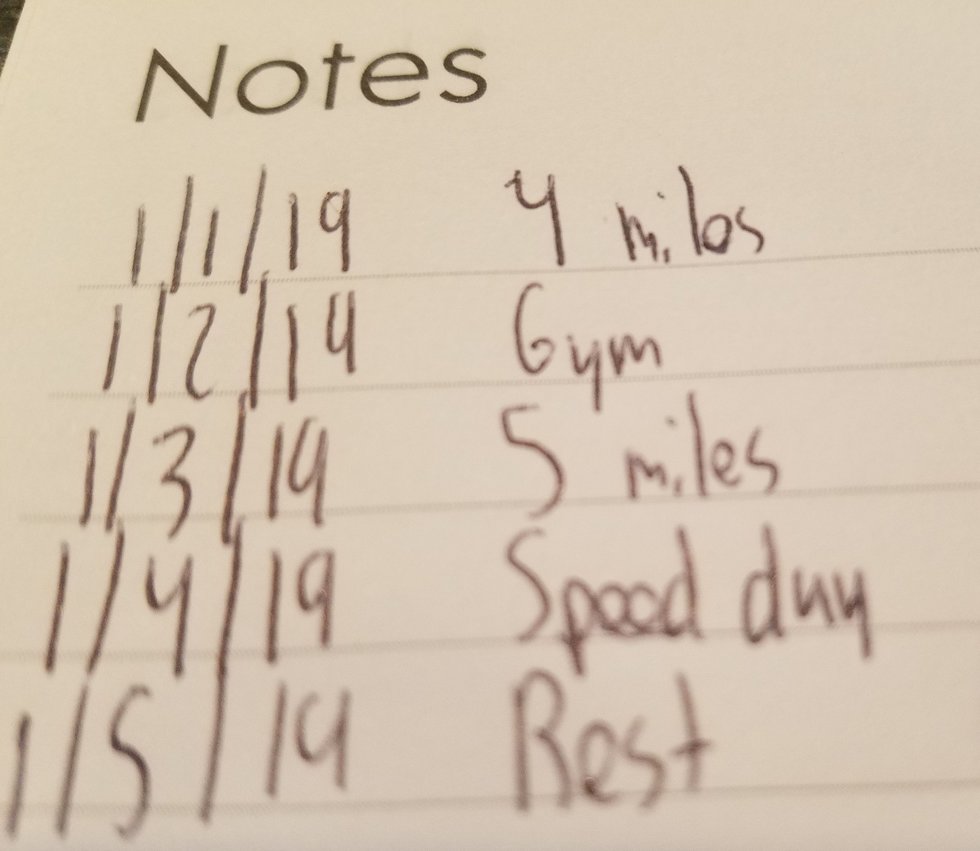 Notes
1/1/19 4 miles
1/2/19 Gym
1/3/19 5 miles
1/4/19 Speed day
1/5/19 Rest